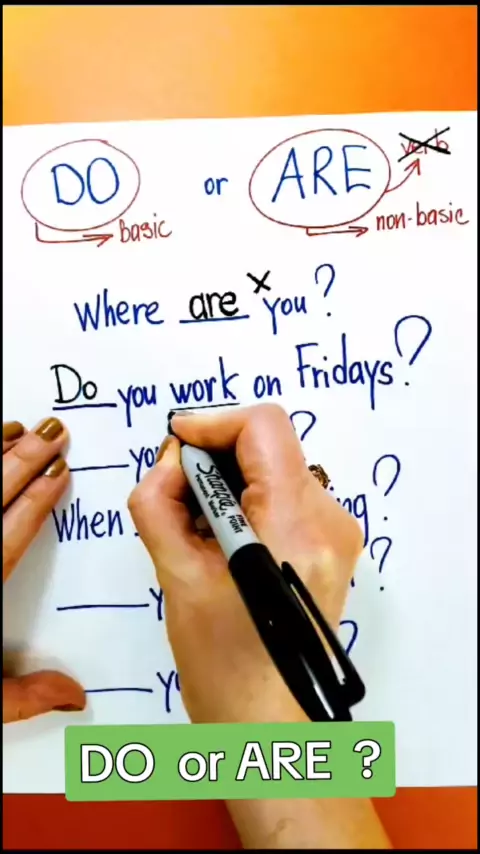 DO or ARE verb
basic non-basic
Where are x you?
Do you work on Fridays?
___ ?
When ?
___ ?
___ ?
Sharpie
FINE POINT
DO or ARE ?